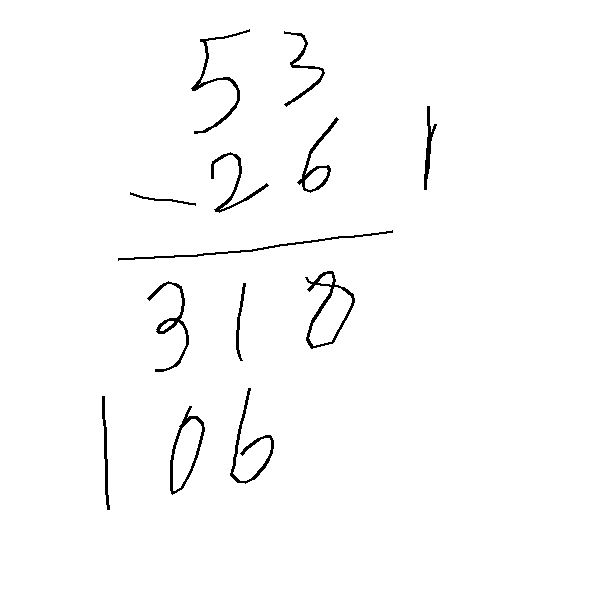 53
- 26 1
318
106